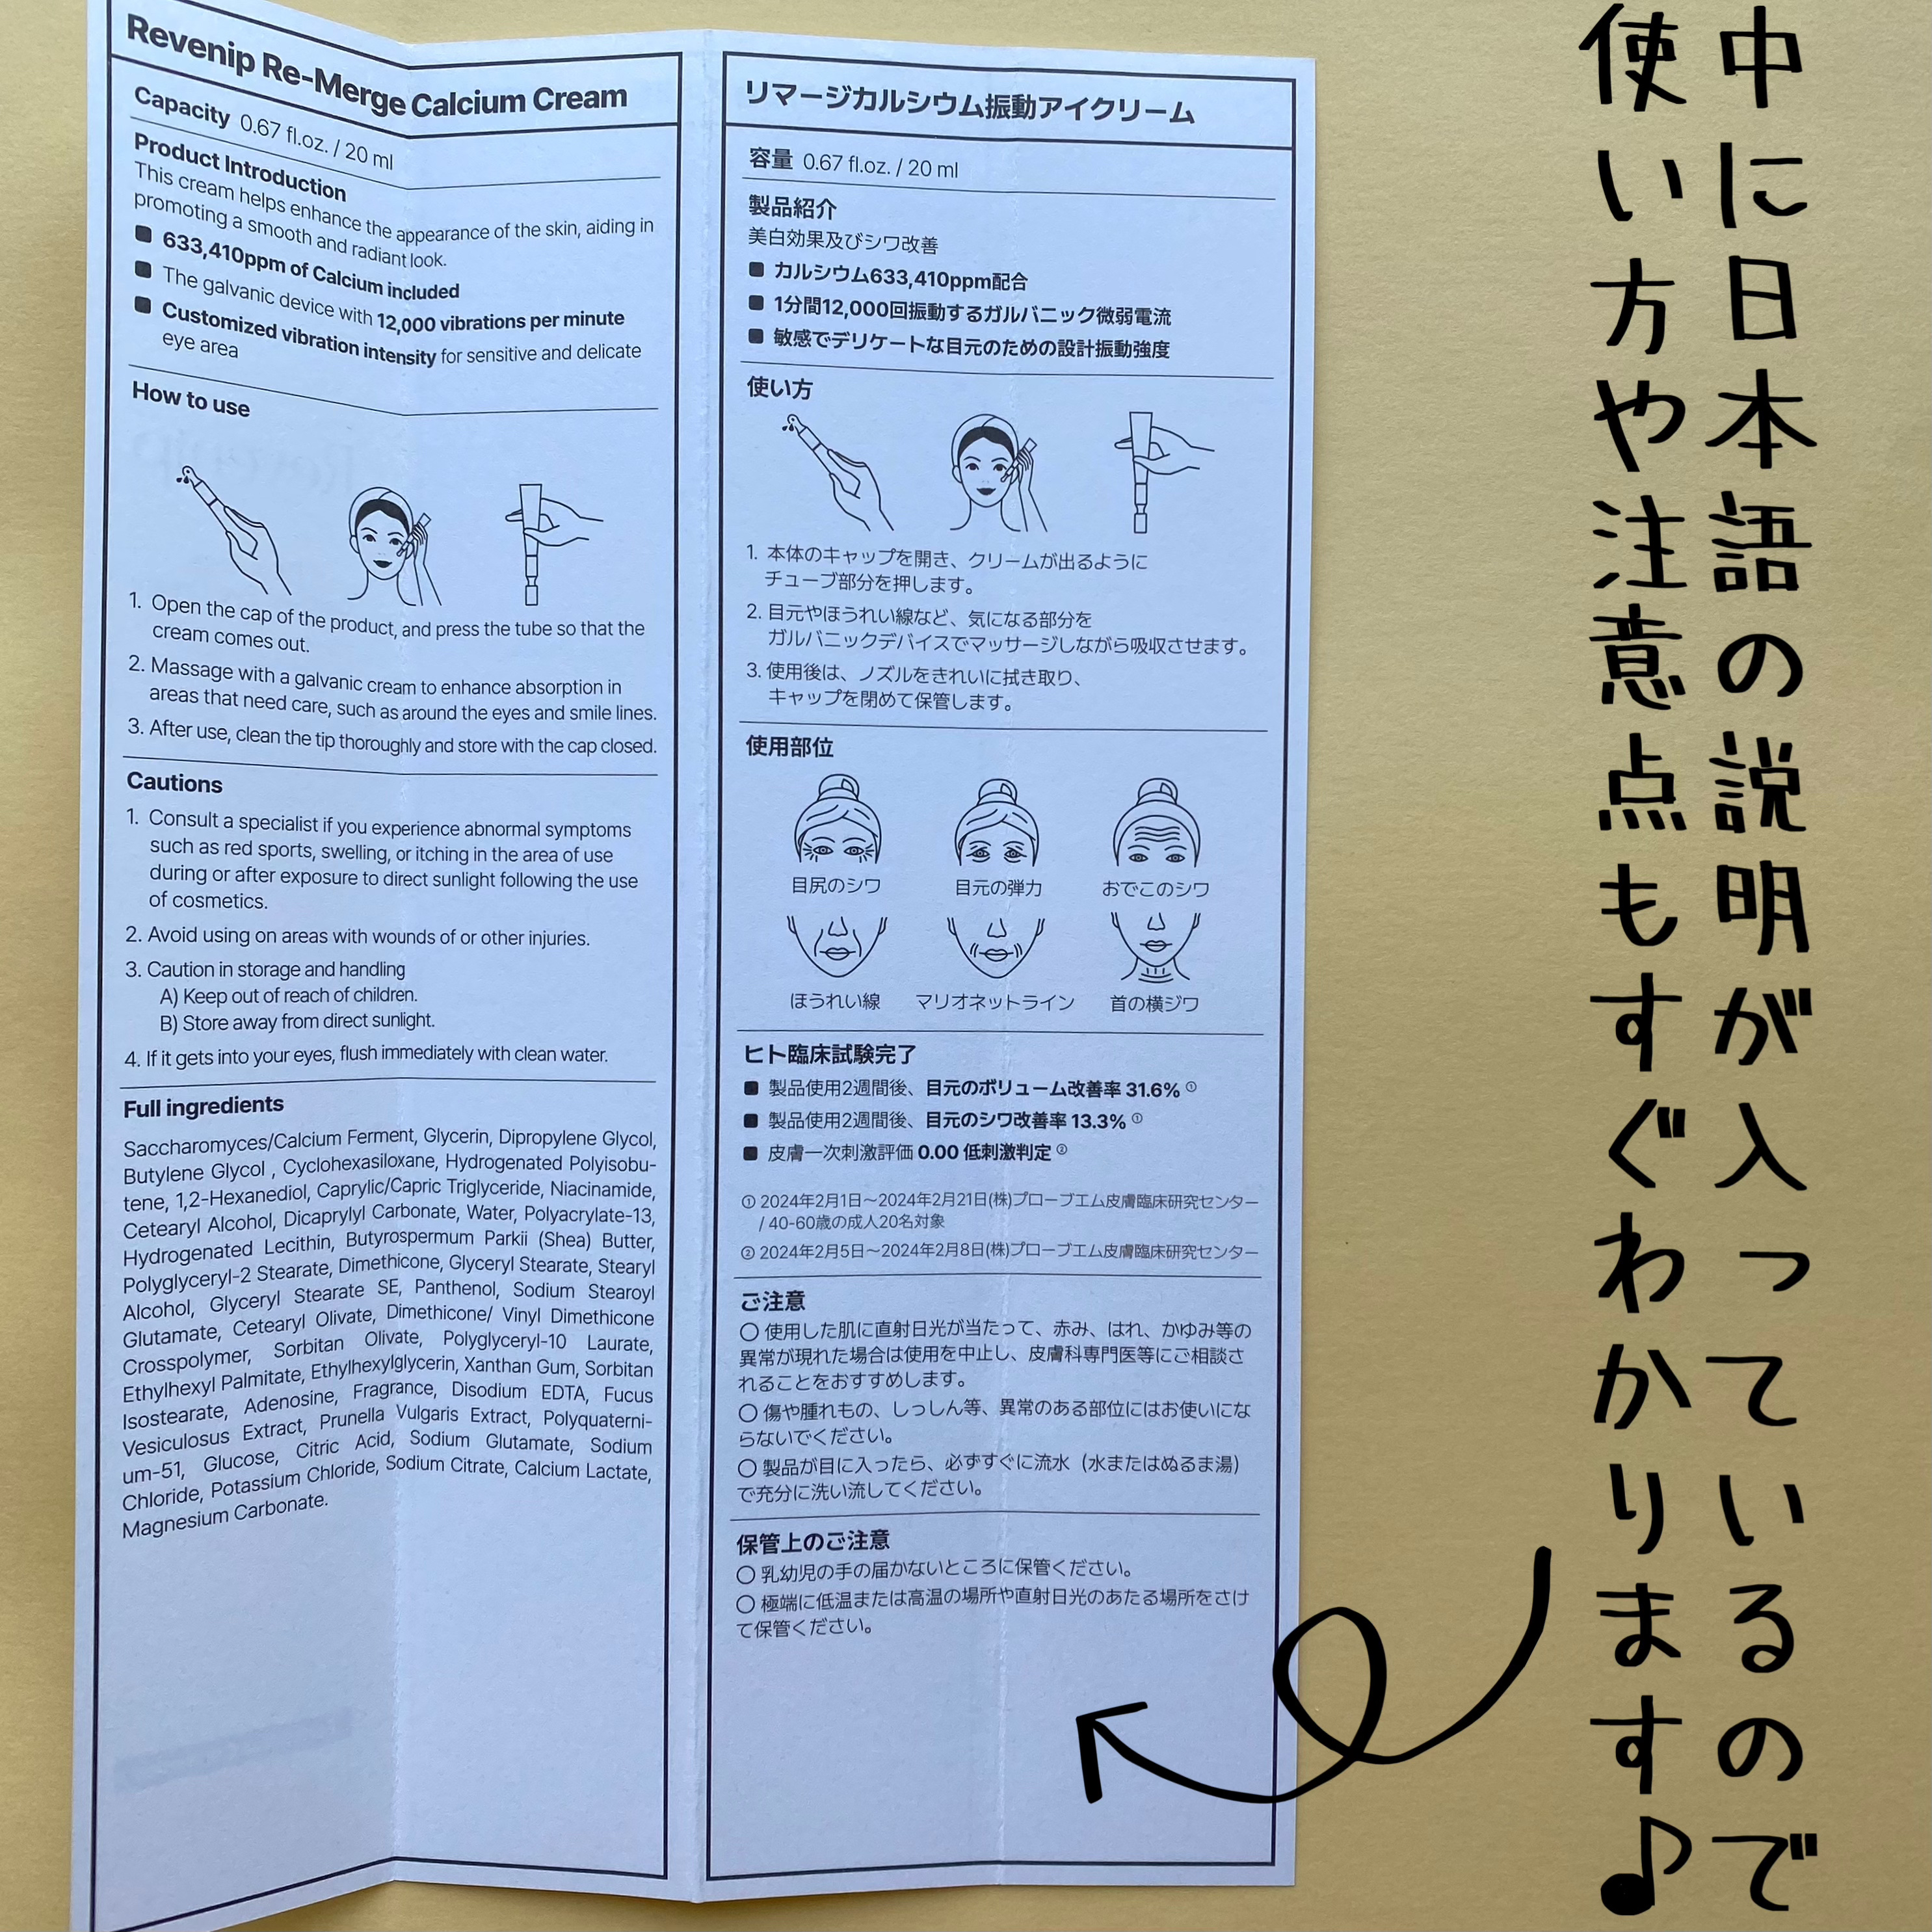 Revenip Re-Merge Calcium Cream
Capacity 0.67 fl.oz. / 20 ml
Product Introduction
This cream helps enhance the appearance of the skin, aiding in
promoting a smooth and radiant look.
■ 633,410ppm of Calcium included
■ The galvanic device with 12,000 vibrations per minute
■ Customized vibration intensity for sensitive and delicate
eye area
How to use
1. Open the cap of the product, and press the tube so that the
cream comes out.
2. Massage with a galvanic cream to enhance absorption in
areas that need care, such as around the eyes and smile lines.
3. After use, clean the tip thoroughly and store with the cap closed.
Cautions
1. Consult a specialist if you experience abnormal symptoms
such as red sports, swelling, or itching in the area of use
during or after exposure to direct sunlight following the use
of cosmetics.
2. Avoid using on areas with wounds of or other injuries.
3. Caution in storage and handling
A) Keep out of reach of children.
B) Store away from direct sunlight.
4. If it gets into your eyes, flush immediately with clean water.
Full ingredients
Saccharomyces/Calcium Ferment, Glycerin, Dipropylene Glycol,
Butylene Glycol , Cyclohexasiloxane, Hydrogenated Polyisobu-
tene, 1,2-Hexanediol, Caprylic/Capric Triglyceride, Niacinamide,
Cetearyl Alcohol, Dicaprylyl Carbonate, Water, Polyacrylate-13,
Hydrogenated Lecithin, Butyrospermum Parkii (Shea) Butter,
Polyglyceryl-2 Stearate, Dimethicone, Glyceryl Stearate, Stearyl
Alcohol, Glyceryl Stearate SE, Panthenol, Sodium Stearoyl
Glutamate, Cetearyl Olivate, Dimethicone/ Vinyl Dimethicone
Crosspolymer, Sorbitan Olivate, Polyglyceryl-10 Laurate,
Ethylhexyl Palmitate, Ethylhexylglycerin, Xanthan Gum, Sorbitan
Isostearate, Adenosine, Fragrance, Disodium EDTA, Fucus
Vesiculosus Extract, Prunella Vulgaris Extract, Polyquaterni-
um-51, Glucose, Citric Acid, Sodium Glutamate, Sodium
Chloride, Potassium Chloride, Sodium Citrate, Calcium Lactate,
Magnesium Carbonate.
リマージカルシウム振動アイクリーム
容量 0.67 fl.oz. / 20 ml
製品紹介
美白効果及びシワ改善
■ カルシウム633,410ppm配合
■ 1分間12,000回振動するガルバニック微弱電流
■ 敏感でデリケートな目元のための設計振動強度
使い方
1. 本体のキャップを開き、クリームが出るように
チューブ部分を押します。
2. 目元やほうれい線など、気になる部分を
ガルバニックデバイスでマッサージしながら吸収させます。
3. 使用後は、ノズルをきれいに拭き取り、
キャップを閉めて保管します。
使用部位
目尻のシワ 目元の弾力 おでこのシワ
ほうれい線 マリオネットライン 首の横ジワ
ヒト臨床試験完了
■ 製品使用2週間後、目元のボリューム改善率 31.6% ①
■ 製品使用2週間後、目元のシワ改善率 13.3% ①
■ 皮膚一次刺激評価 0.00 低刺激判定 ②
① 2024年2月1日～2024年2月21日(株)プローブエム皮膚臨床研究センター
/ 40-60歳の成人20名対象
② 2024年2月5日～2024年2月8日(株)プローブエム皮膚臨床研究センター
ご注意
○ 使用した肌に直射日光が当たって、赤み、はれ、かゆみ等の
異常が現れた場合は使用を中止し、皮膚科専門医等にご相談さ
れることをおすすめします。
○ 傷や腫れもの、しっしん等、異常のある部位にはお使いにな
らないでください。
○ 製品が目に入ったら、必ずすぐに流水（水またはぬるま湯）
で充分に洗い流してください。
保管上のご注意
○ 乳幼児の手の届かないところに保管ください。
○ 極端に低温または高温の場所や直射日光のあたる場所をさけ
て保管ください。
中に日本語の説明が入っているので
使い方や注意点もすぐわかります♪